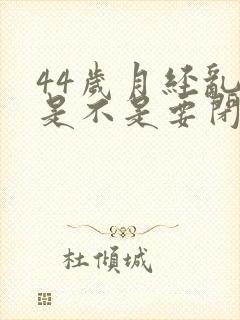 44歲月经亂
是不是要閉
杜傾城